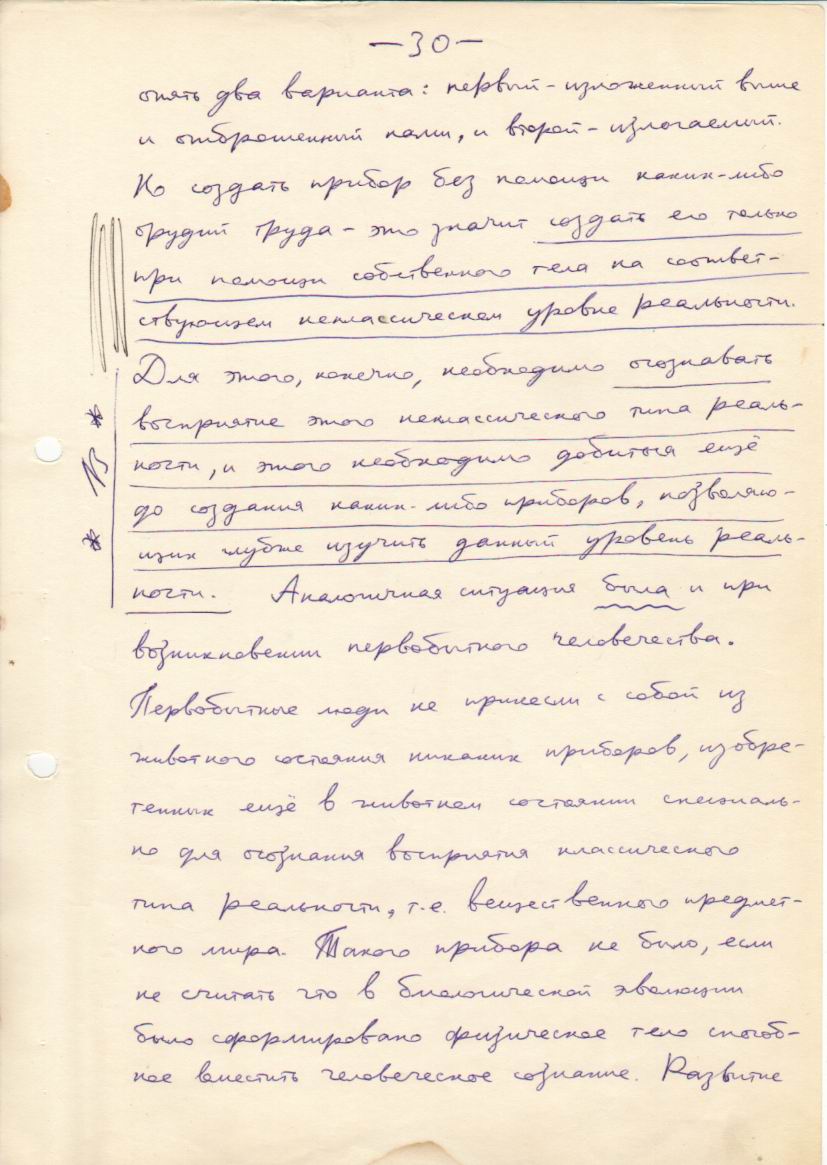 —30—
опять два варианта: первый – изложенный выше
и отброшенный нами, и второй – излагаемый.
Но создать прибор без помощи каких-либо
орудий труда – это значит создать его только
при помощи собственного тела на соответ-
ствующем неклассическом уровне реальности.
Для этого, конечно, необходимо осознавать
восприятие этого неклассического типа реаль-
ности, и этого необходимо добиться ещё
до создания каких-либо приборов, позволяю-
щих глубже изучить данный уровень реаль-
ности. Аналогичная ситуация была и при
* NB *
возникновении первобытного человечества.
Первобытные люди не принесли с собой из
животного состояния никаких приборов, изобре-
тенных ещё в животном состоянии специаль-
но для осознания восприятия классического
типа реальности, т.е. вещественного предмет-
ного мира. Такого прибора не было, если
не считать что в биологической эволюции
было сформировано физическое тело способ-
ное вместить человеческое сознание. Развитие